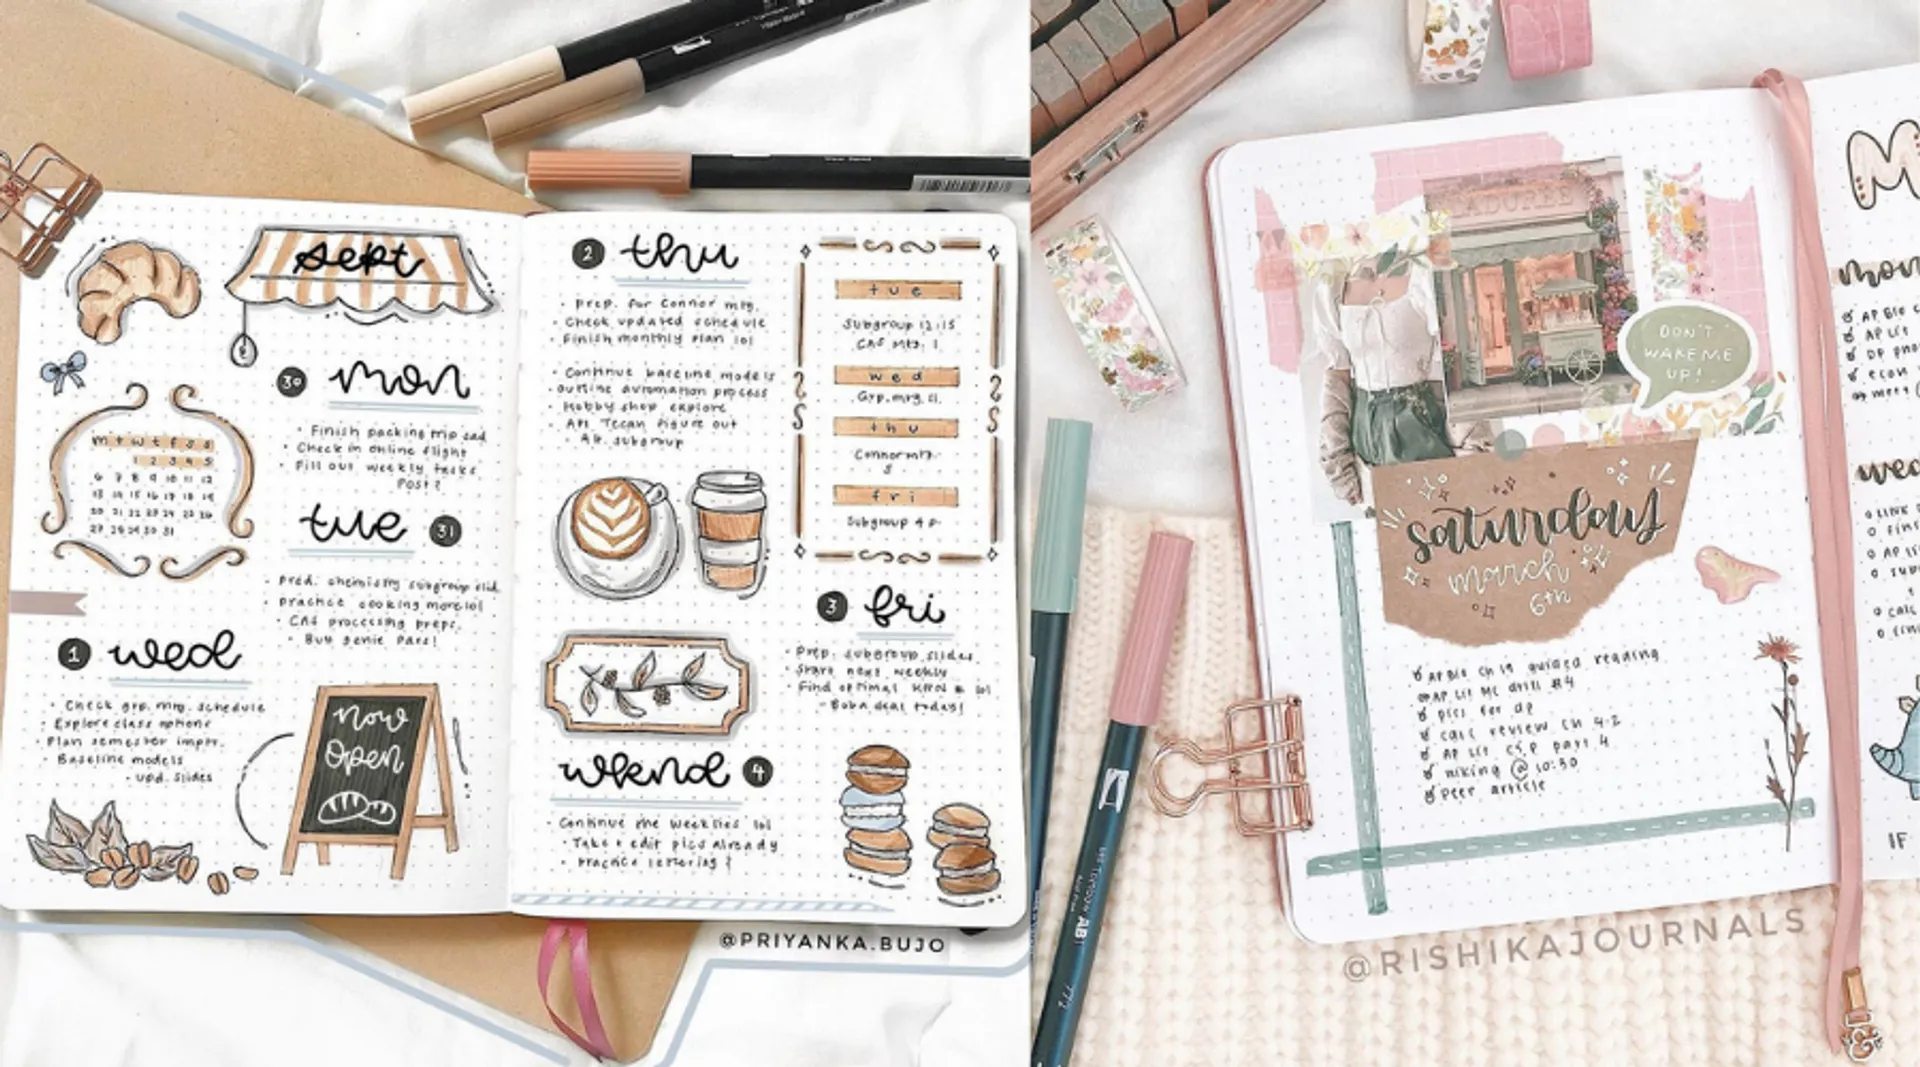 sept
m t w t f s s
1 2 3 4 5
6 7 8 9 10 11 12
13 14 15 16 17 18 19
20 21 22 23 24 25 26
27 28 29 30 31
30 mon
Finish packing
Check in online flight
Fill out weekly tasks
Post?
tue 31
Pred. chemistry subgroup slid.
practice cooking more lol
CAS processing preps.
Buy genie pass!
1 wed
Check grp. mtg. schedule
Explore class options
Plan semester
Baseline models
upd. slides
now
open
2 thu
Prep. for Connor mtg.
Check updated schedule
Finish monthly plan lol
Continue baseline models
outline automation process
Hobby shop explore
API Tecan figure out
subgroup
tue
Subgroup 12:15
CAS Mtg. 1
wed
Grp. mtg. 11
thu
Connor mtg.
fri
Subgroup 4
3 fri
Prep. subgroup slides
Start next weekly
Find optimal lol
Boba deal today!
wknd 4
Continue the weeklies lol
Take + edit pics already
practice lettering?
@PRIYANKA.BUJO
LADURÉE
DON'T
WAKE ME
UP!
saturday
march
6th
AP Bio ch 19 guided reading
AP Lit MC drill #4
pics for dp
calc review ch 4-2
AP Lit part 4
hiking @ 10:30
peer article
@RISHIKAJOURNALS
M
mon
AP Bio
AP Lit
econ
wed
AP
calc
IF